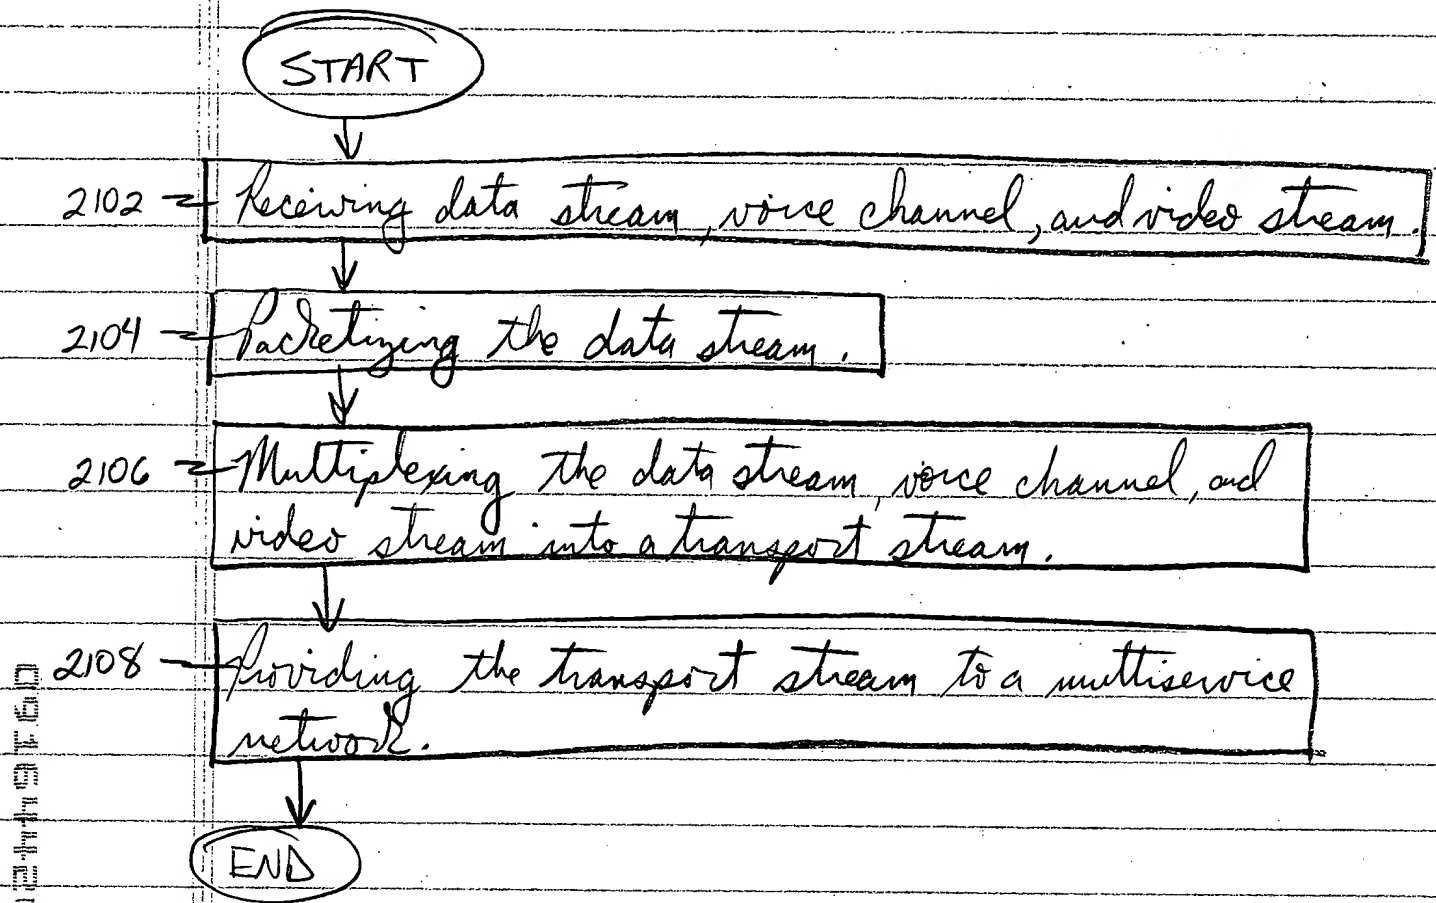 START
2102 Receiving data stream, voice channel, and video stream.
2104 Packetizing the data stream.
2106 Multiplexing the data stream, voice channel, and
video stream into a transport stream.
2108 Providing the transport stream to a multiservice
network.
END